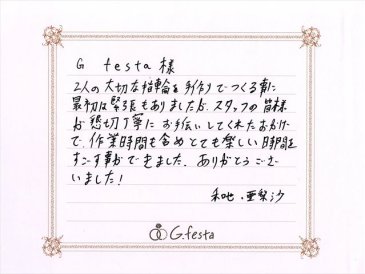 G festa 様
2人の大切な指輪を手作りでつくる事に
最初は緊張もありましたが、スタッフの皆様
が懇切丁寧にお手伝いしてくれたおかげ
で、作業時間も含めとても楽しい時間を
すごす事ができました。ありがとうござ
いました!
和也・亜梨沙
G.festa